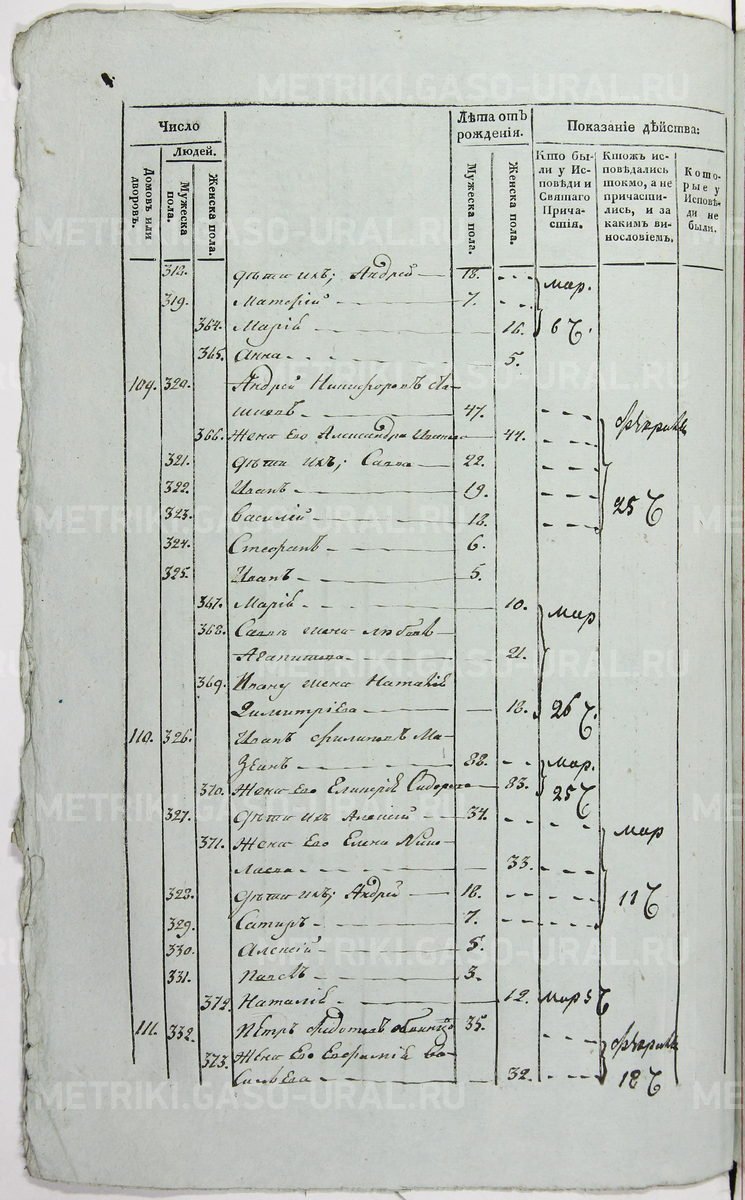 METRIKI.GASO-URAL.RU
Число
Лѣта отъ рожденія.
Показаніе дѣйства:
Домовъ или дворовъ.
Людей.
Мужеска пола.
Женска пола.
Мужеска пола.
Женска пола.
Кто бы-
ли у Ис-
повѣди и
Святаго
Прича-
стія.
Ктожъ ис-
повѣдались
токмо, а не
причасти-
лись, и за
какимъ ви-
нословіемъ.
Кото-
рые у
Исповѣ-
ди не
были.
318. дѣти ихъ; Андрей 18.
319. 7. мар.
364. Марія 16. 6
365. Анна 5.
109. 320. Андрей Никифоровъ
47.
366. Жена его Александра 44.
321. дѣти ихъ; Савва 22.
322. Иванъ 19. 25
323. Василій 18.
324. Стефанъ 6.
325. Иванъ 5.
367. Марія 10. мар
368. жена Любовь
Агапитова 21.
369. Ивану жена Наталія
Димитріева 18. 26
110. 326. Иванъ Филиповъ Ма-
88. мар.
370. Жена его 83. 25
327. дѣти ихъ Алексій 34. мар
371. Жена его Елена Нико-
лаева 33.
328. дѣти ихъ; Андрей 18. 11
329. Сатиръ 7.
330. Алексій 5.
331. Павелъ 3.
372. Наталія 12. мар 5
111. 332. Пётръ Федотовъ 35.
373. Жена его Евфимія Ва-
сильева 32. 18